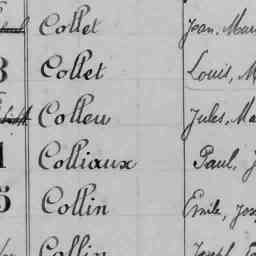 Collet Jean, Mar
3 Collet Louis, M
Colleu Jules, Ma
1 Colliaux Paul, J
5 Collin Emile, Jos
Collin Joseph